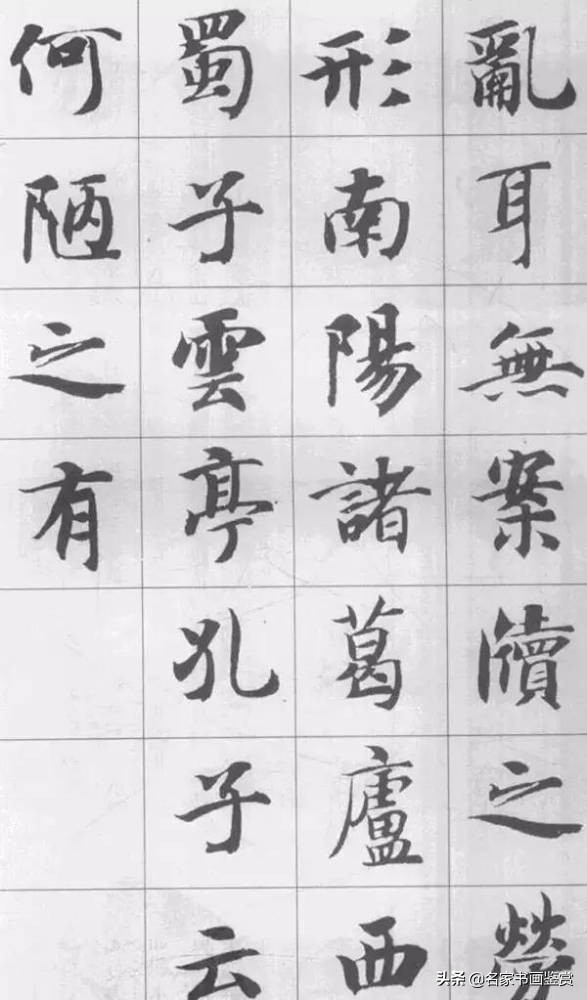 亂耳無案牘之勞
形南陽諸葛廬西
蜀子雲亭孔子云
何陋之有
头条 @名家书画鉴赏